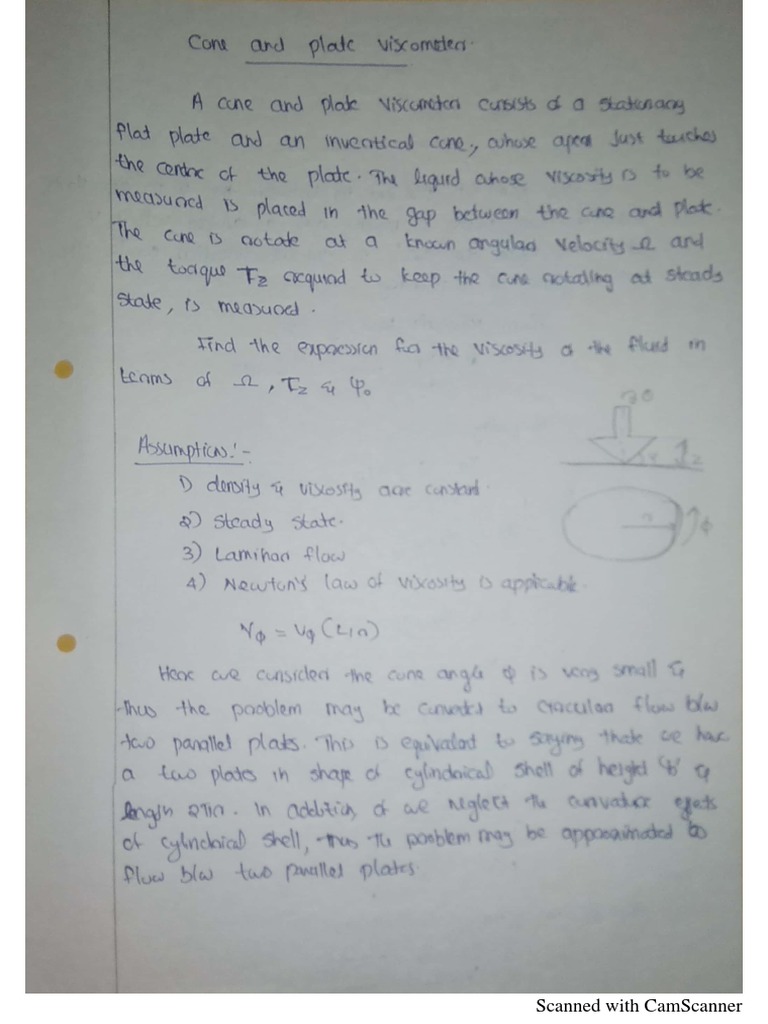 Cone and plate viscometer.
A cone and plate viscometer consists of a stationary
flat plate and an inverted cone, whose apex just touches
the centre of the plate. The liquid whose viscosity is to be
measured is placed in the gap between the cone and plate.
The cone is rotate at a known angular velocity Ω and
the torque Tz required to keep the cone rotating at steady
state, is measured.
Find the expression for the viscosity of the fluid in
terms of Ω, Tz & φ₀
Assumption:-
1) density & viscosity are constant.
2) Steady state.
3) Laminar flow
4) Newton's law of viscosity is applicable.
Vφ = Vφ(z,r)
Here we consider the cone angle φ is very small &
thus the problem may be converted to circular flow b/w
two parallel plates. This is equivalent to saying that we have
a two plates in shape of cylindrical shell of height 'b' &
length 2πr. In addition, if we neglect the curvature effects
of cylindrical shell, thus the problem may be approximated to
flow b/w two parallel plates.
Scanned with CamScanner